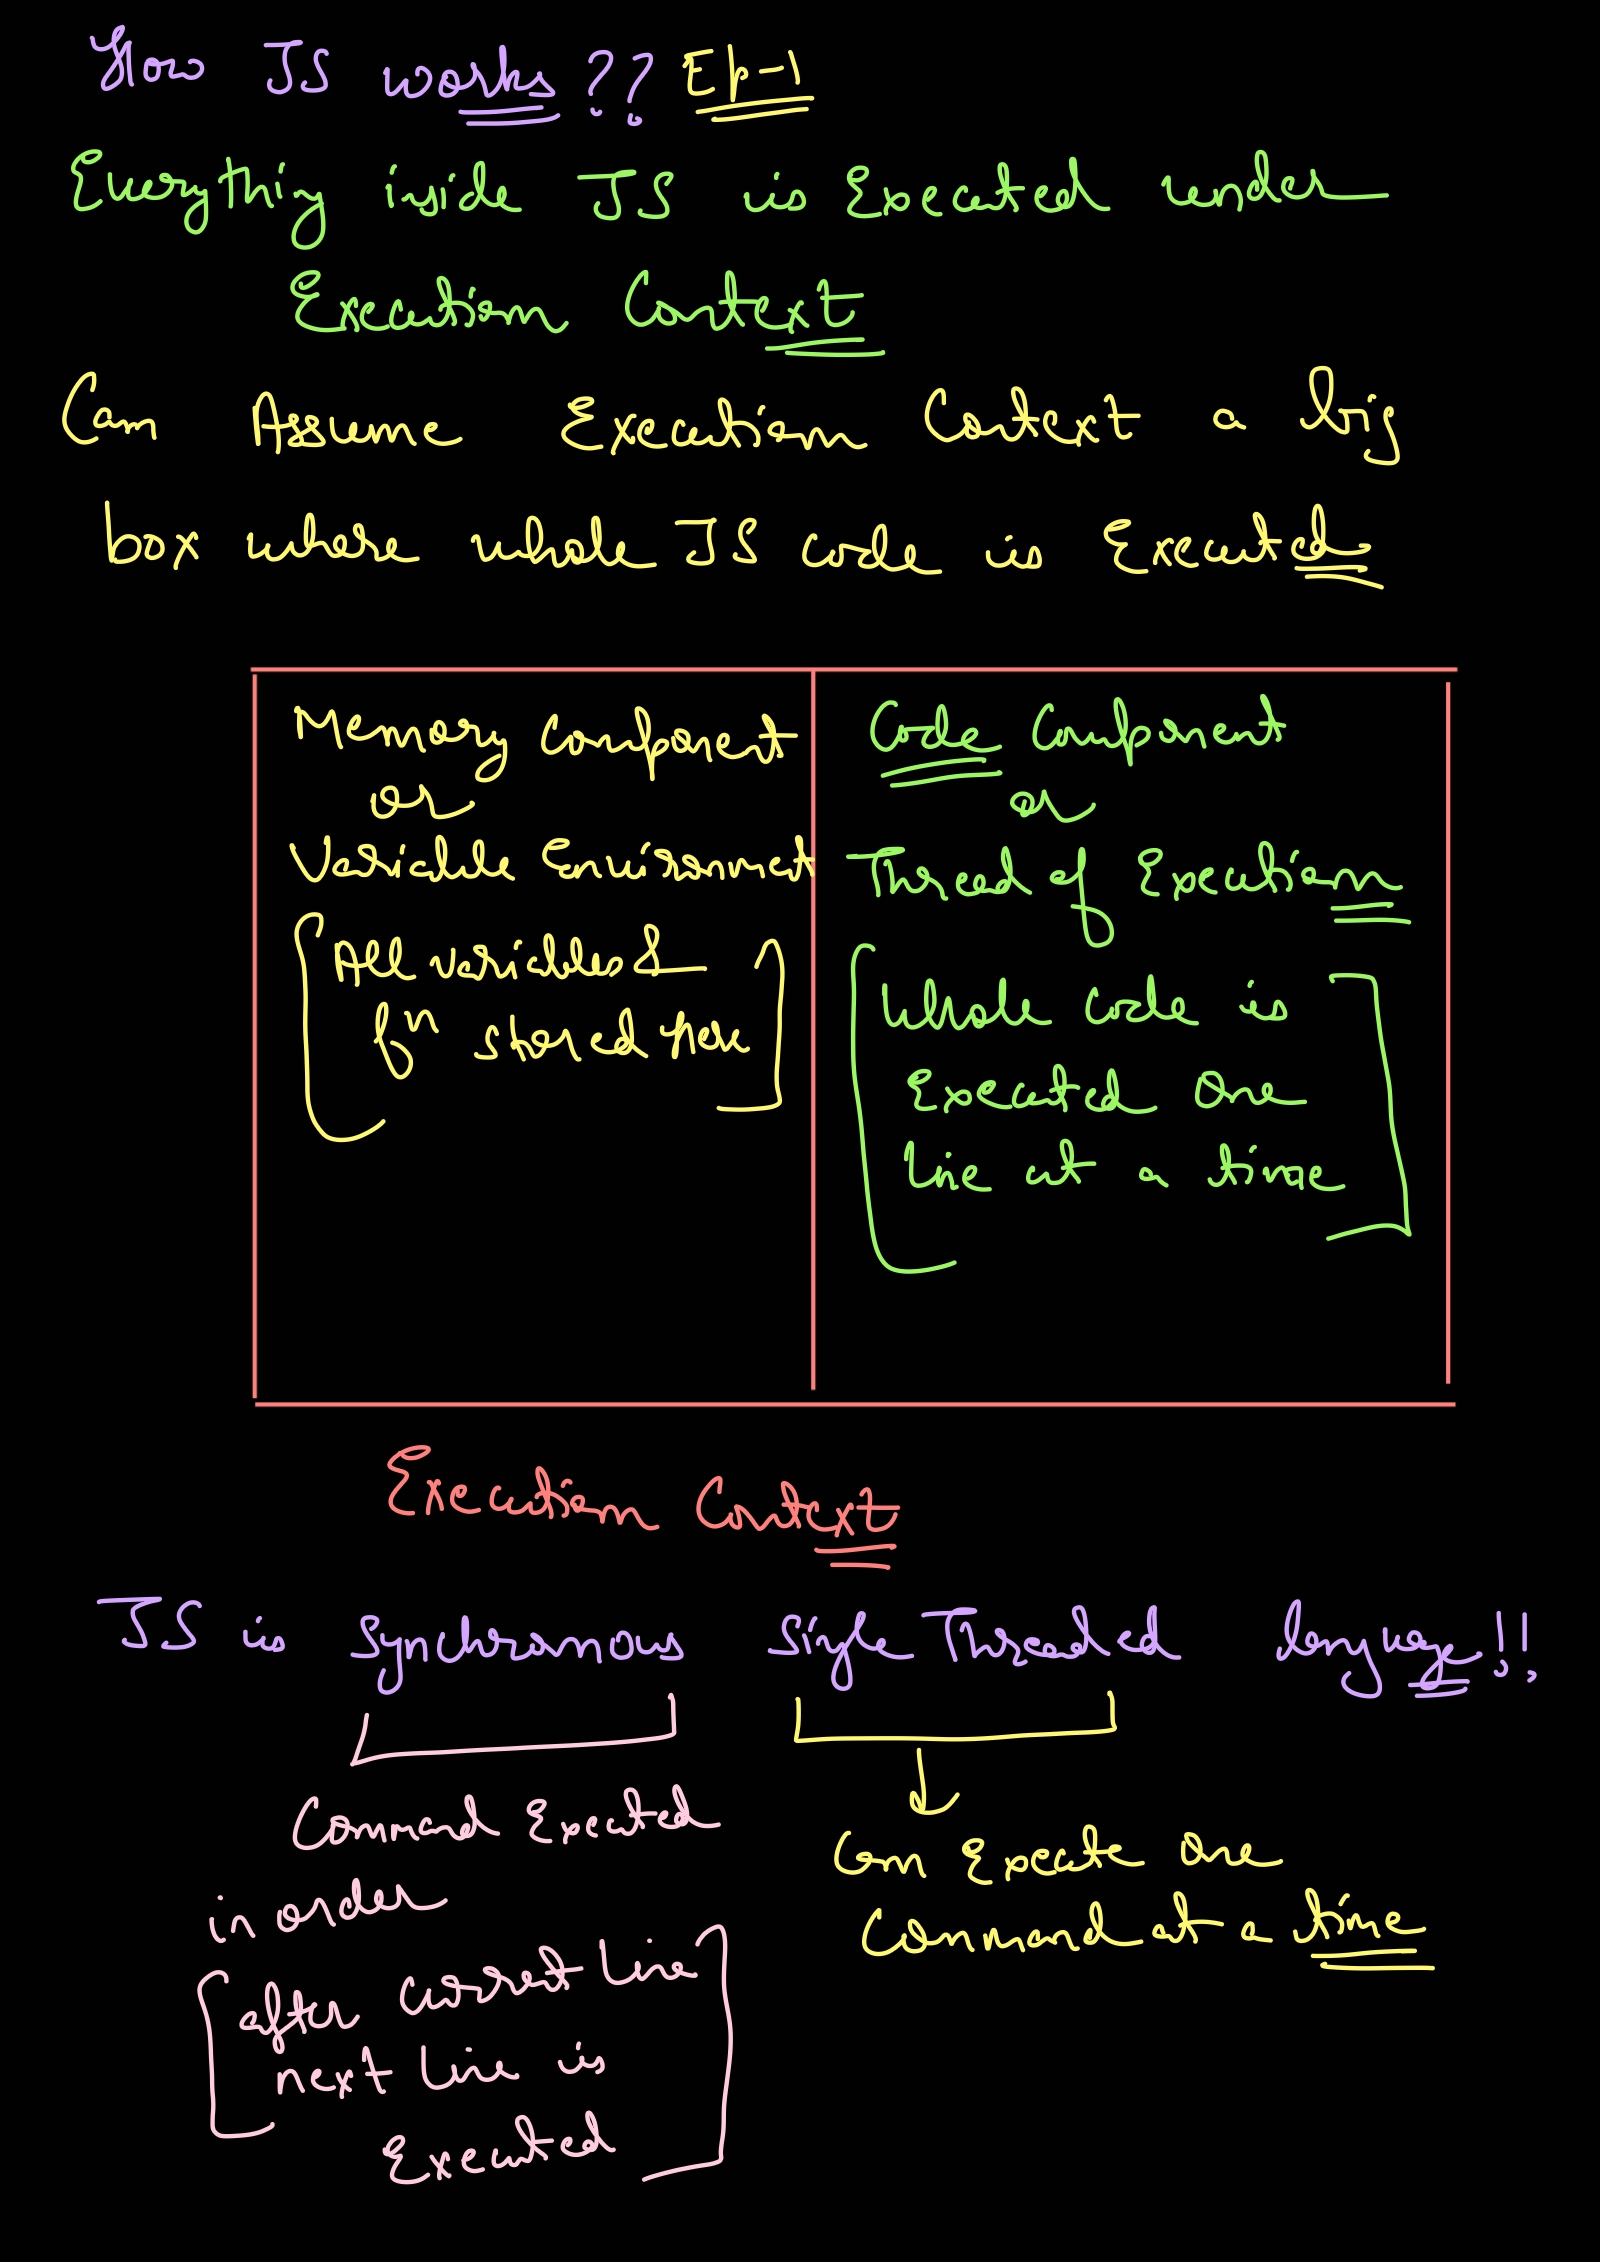 How JS works ?? Ep-1
Everything inside JS is Executed under
Execution Context
Can Assume Execution Context a big
box where whole JS code is Executed
Memory Component
or
Variable Environmet
[All variables &
fⁿ stored here]
Code Component
or
Thread of Execution
[Whole code is
Executed One
line at a time]
Execution Context
JS is Synchronous Single Threaded language!!
Command Executed
in order
[after current line
next line is
Executed]
Can Execute One
Command at a time